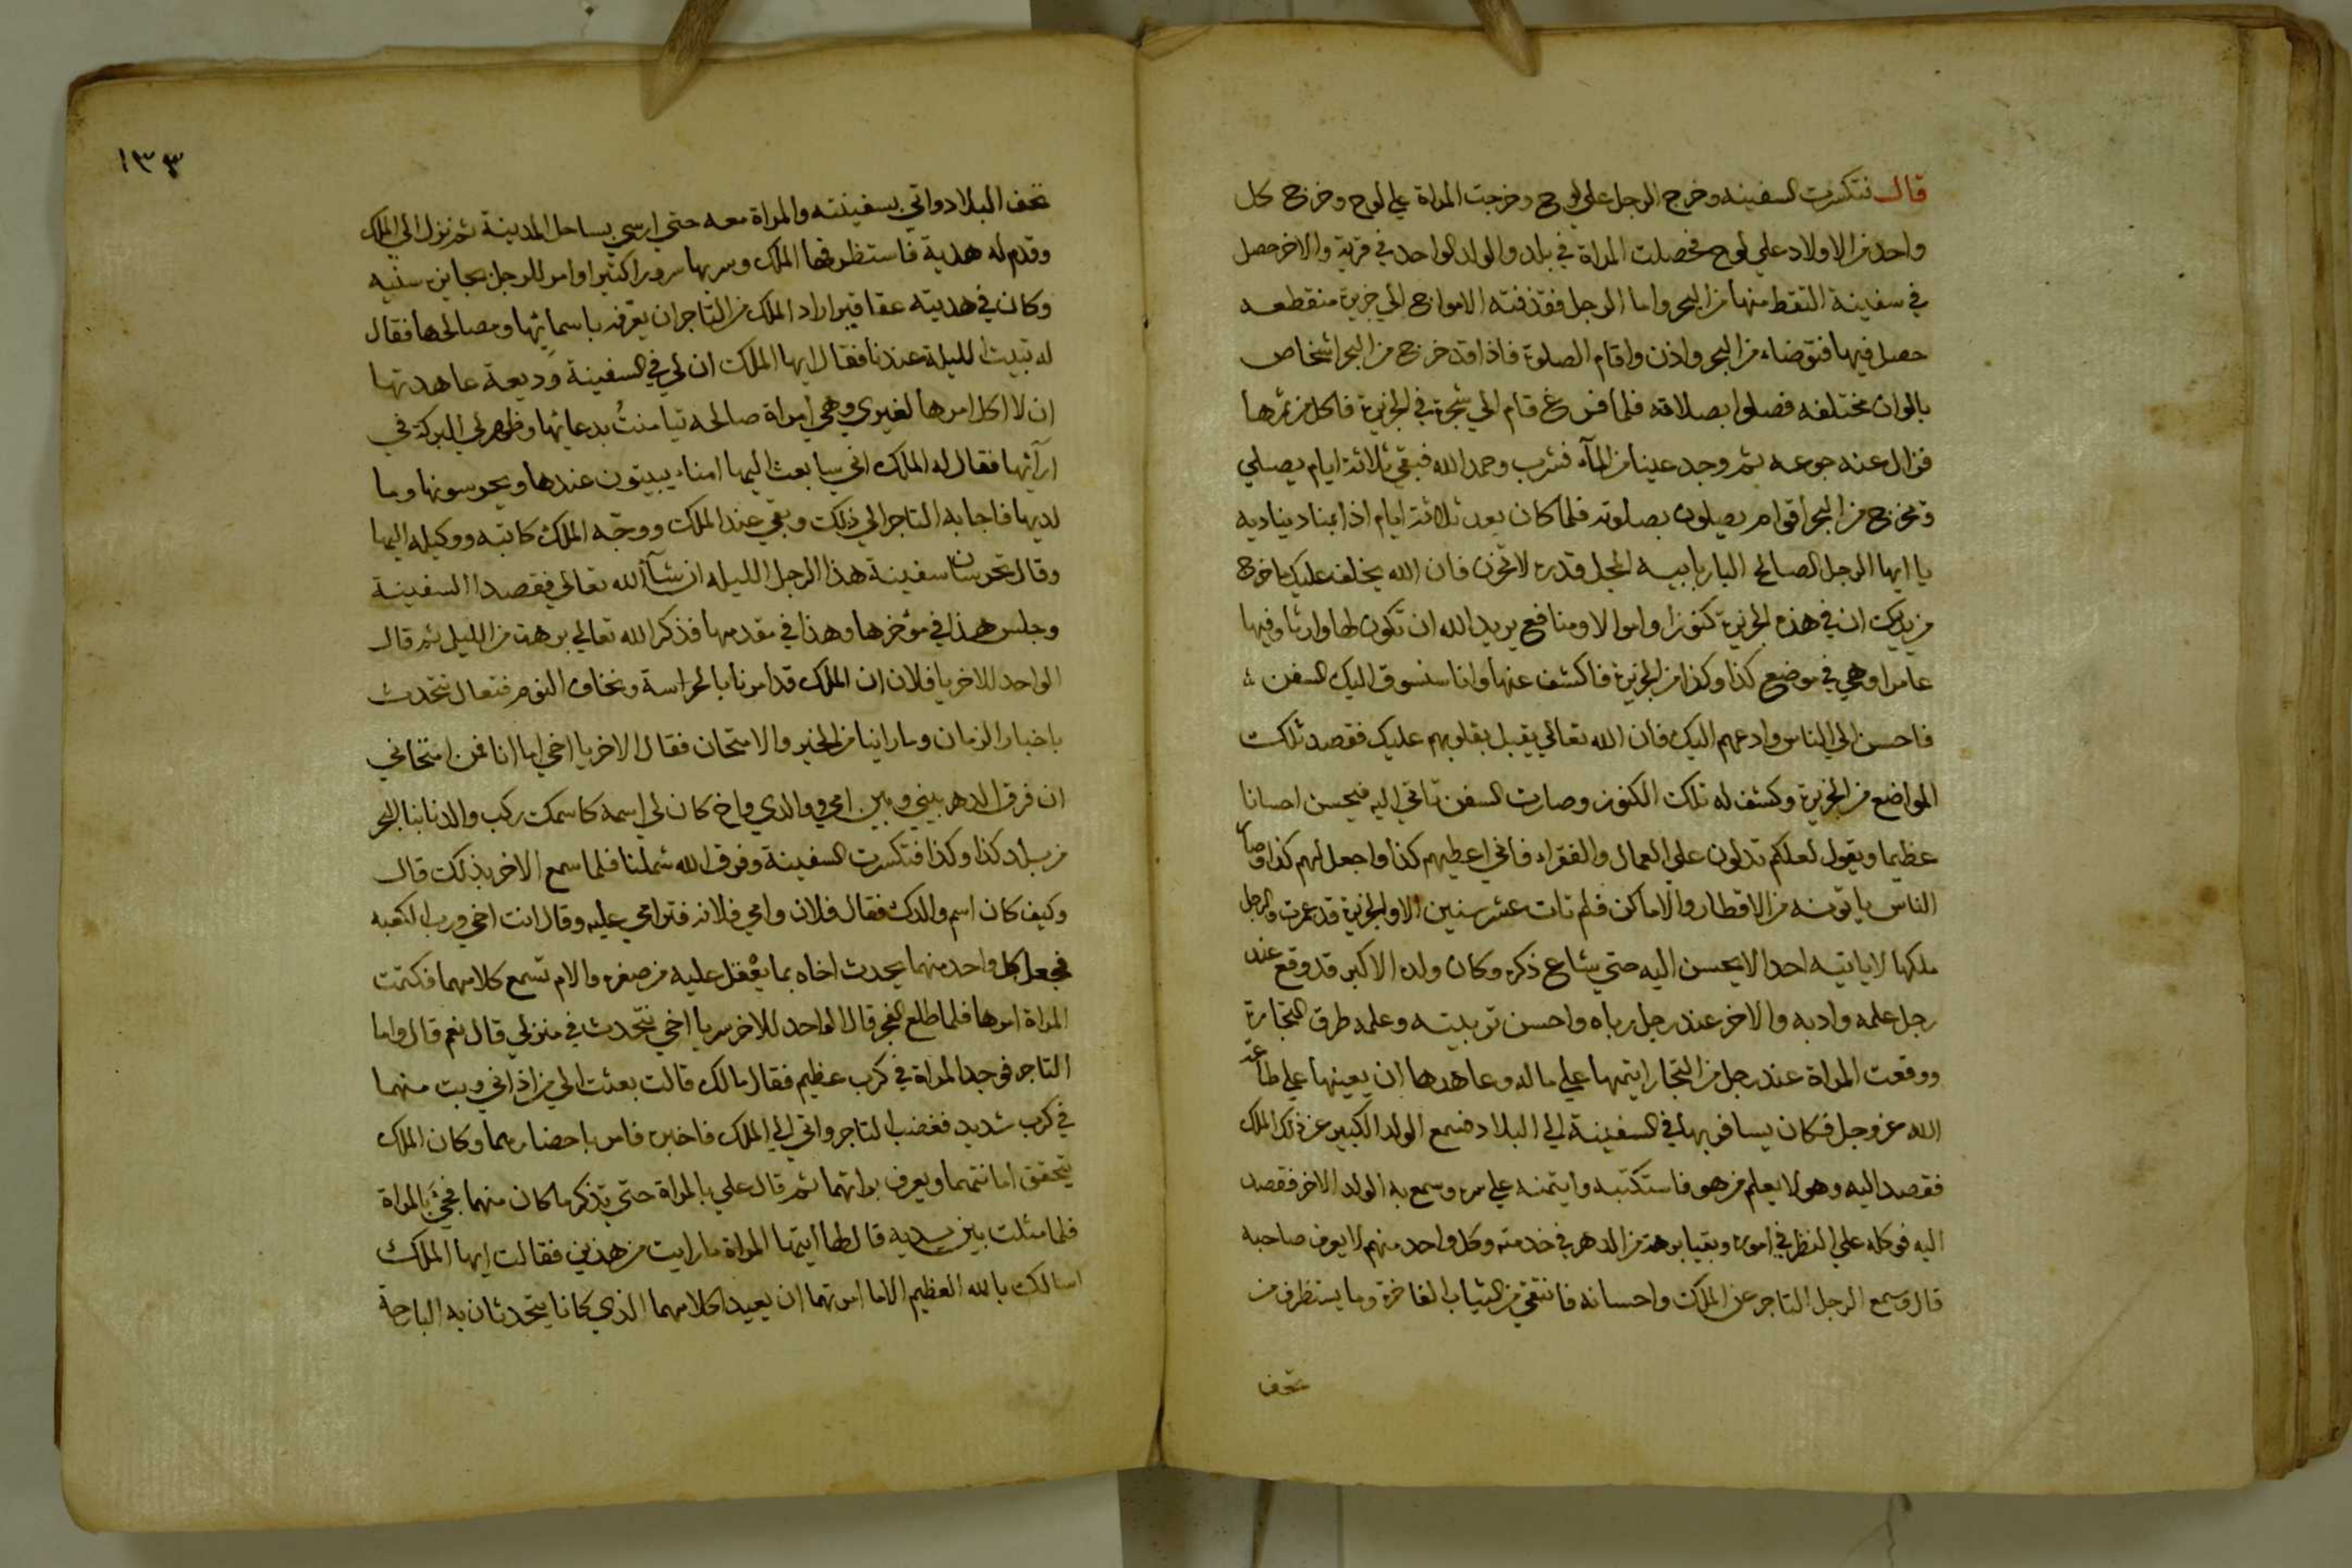 قال فتكسرت السفينه وخرج الرجل علي لوح وخرجت المراة علي لوح وخرج كل
واحد من الاولاد علي لوح فحصلت المراة في بلد والولد الواحد في قرية والاخر حصل
في سفينة التقط منها من البحر واما الرجل فقذفته الامواج الي جزيرة منقطعه
حصل فيها فتوضاء من البحر واذن واقام الصلوة فاذا قد خرج من البحر اشخاص
بالوان مختلفه فصلوا بصلاته فلما فرغ قام الي شجرة في الجزيرة فاكل من ثمرها
فزال عنه جوعه ثم وجد عينا من المآء فشرب وحمد الله فبقي ثلاثة ايام يصلي
وتخرج من البحر اقوام يصلون بصلوته فلما كان بعد ثلاثة ايام اذا بمناد يناديه
يا ايها الرجل الصالح البار بابيه المجل قدره لا تحزن فان الله يخلف عليك ما خرج
من يدك ان في هذه الجزيرة كنوزا واموالا ومنافع يريد الله ان تكون لها وارثا وفيها
عامرا وهي في موضع كذا وكذا من الجزيرة فاكشف عنها وانا سنسوق اليك السفن
فاحسن الي الناس وادعهم اليك فان الله تعالي يقبل بقلوبهم عليك فقصد تلك
المواضع من الجزيرة وكشف له تلك الكنوز وصارت السفن تاتي اليه فيحسن احسانا
عظيما ويقول لعلكم تدلون علي العمال والفقراء فاني اعطيهم كذا واجعل لهم كذا وصار
الناس ياتونه من الاقطار والاماكن فلم تات عشر سنين الا والجزيرة قد عمرت والرجل
ملكها لا ياتيه احد الا يحسن اليه حتي شاع ذكره وكان ولده الاكبر قد وقع عند
رجل علمه وادبه والاخر عند رجل رباه واحسن تربيته وعلمه طرق التجارة
ووقعت المراة عند رجل من التجار ايتمنها علي ماله وعاهدها ان يعينها علي طاعة
الله عز وجل فكان يسافر بها في السفينة الي البلاد فسمع الولد الكبير عن ذلك الملك
فقصد اليه وهو لا يعلم من هو فاستكتبه وايتمنه علي سره وسمع به الولد الاخر فقصد
اليه فوكله علي النظر في اموره وبقيا برهة من الدهر في خدمته وكل واحد منهم لا يعرف صاحبه
قال وسمع الرجل التاجر عن الملك واحسانه فانتقي من الثياب الفاخرة وما يستظرف من
تحف
١٣٣
تحف البلاد واتي بسفينته والمراة معه حتي ارسي بساحل المدينة ثم نزل الي الملك
وقدم له هدية فاستظرفها الملك وسر بها سرورا كثيرا وامر للرجل بجايزه سنيه
وكان في هديته عقاقير اراد الملك من التاجر ان يعرفه باسمائها ومصالحها فقال
له تبيت الليلة عندنا فقال ايها الملك ان لي في السفينة وديعة عاهدتها
ان لا اكل امرها لغيري وهي امراة صالحه تيامنتُ بدعائها وظهر لي البركة في
ارآئها فقال له الملك اني سابعث اليها امناء يبيتون عندها ويحرسونها وما
لديها فاجابه التاجر الي ذلك وبقي عند الملك ووجّه الملك كاتبه ووكيله اليها
وقال تحرسان سفينة هذا الرجل الليله ان شآ الله تعالي فقصدا السفينة
وجلس هذا في موخرها وهذا في مقدمها فذكر الله تعالي برهة من الليل ثم قال
الواحد للاخر يا فلان ان الملك قد امرنا بالحراسة ونخاف النوم فتعال نتحدث
باخبار الزمان وما راينا من الخير والامتحان فقال الاخر يا اخي اما انا فمن امتحاني
ان فرق الدهر بيني وبين امي ووالدي واخ كان لي اسمه كاسمك ركب والدنا بنا البحر
من بلد كذا وكذا فتكسرت السفينة وفرق الله شملنا فلما سمع الاخر بذلك قال
وكيف كان اسم والدك فقال فلان وامي فلانه فترامي عليه وقال انت اخي ورب الكعبه
فجعل كل واحد منهما يحدث اخاه بما يعقل عليه من صغره والام تسمع كلامهما فكتمت
المراة امرها فلما طلع الفجر قال الواحد للاخر سر يا اخي نتحدث في منزلي قال نعم قال واما
التاجر فوجد المراة في كرب عظيم فقال مالك قالت بعثت الي من اذاني وبت منهما
في كرب شديد فغضب التاجر واتي الي الملك فاخبره فامر باحضارهما وكان الملك
يتحقق امانتهما ويعرف براتهما ثم قال علي بالمراة حتي تذكر ما كان منهما فجيئ بالمراة
فلما مثلت بين يديه قال لها ايتها المراة ما رايت من هذين فقالت ايها الملك
اسالك بالله العظيم الا ما امرتهما ان يعيدا كلامهما الذي كانا يتحدثان به البارحة